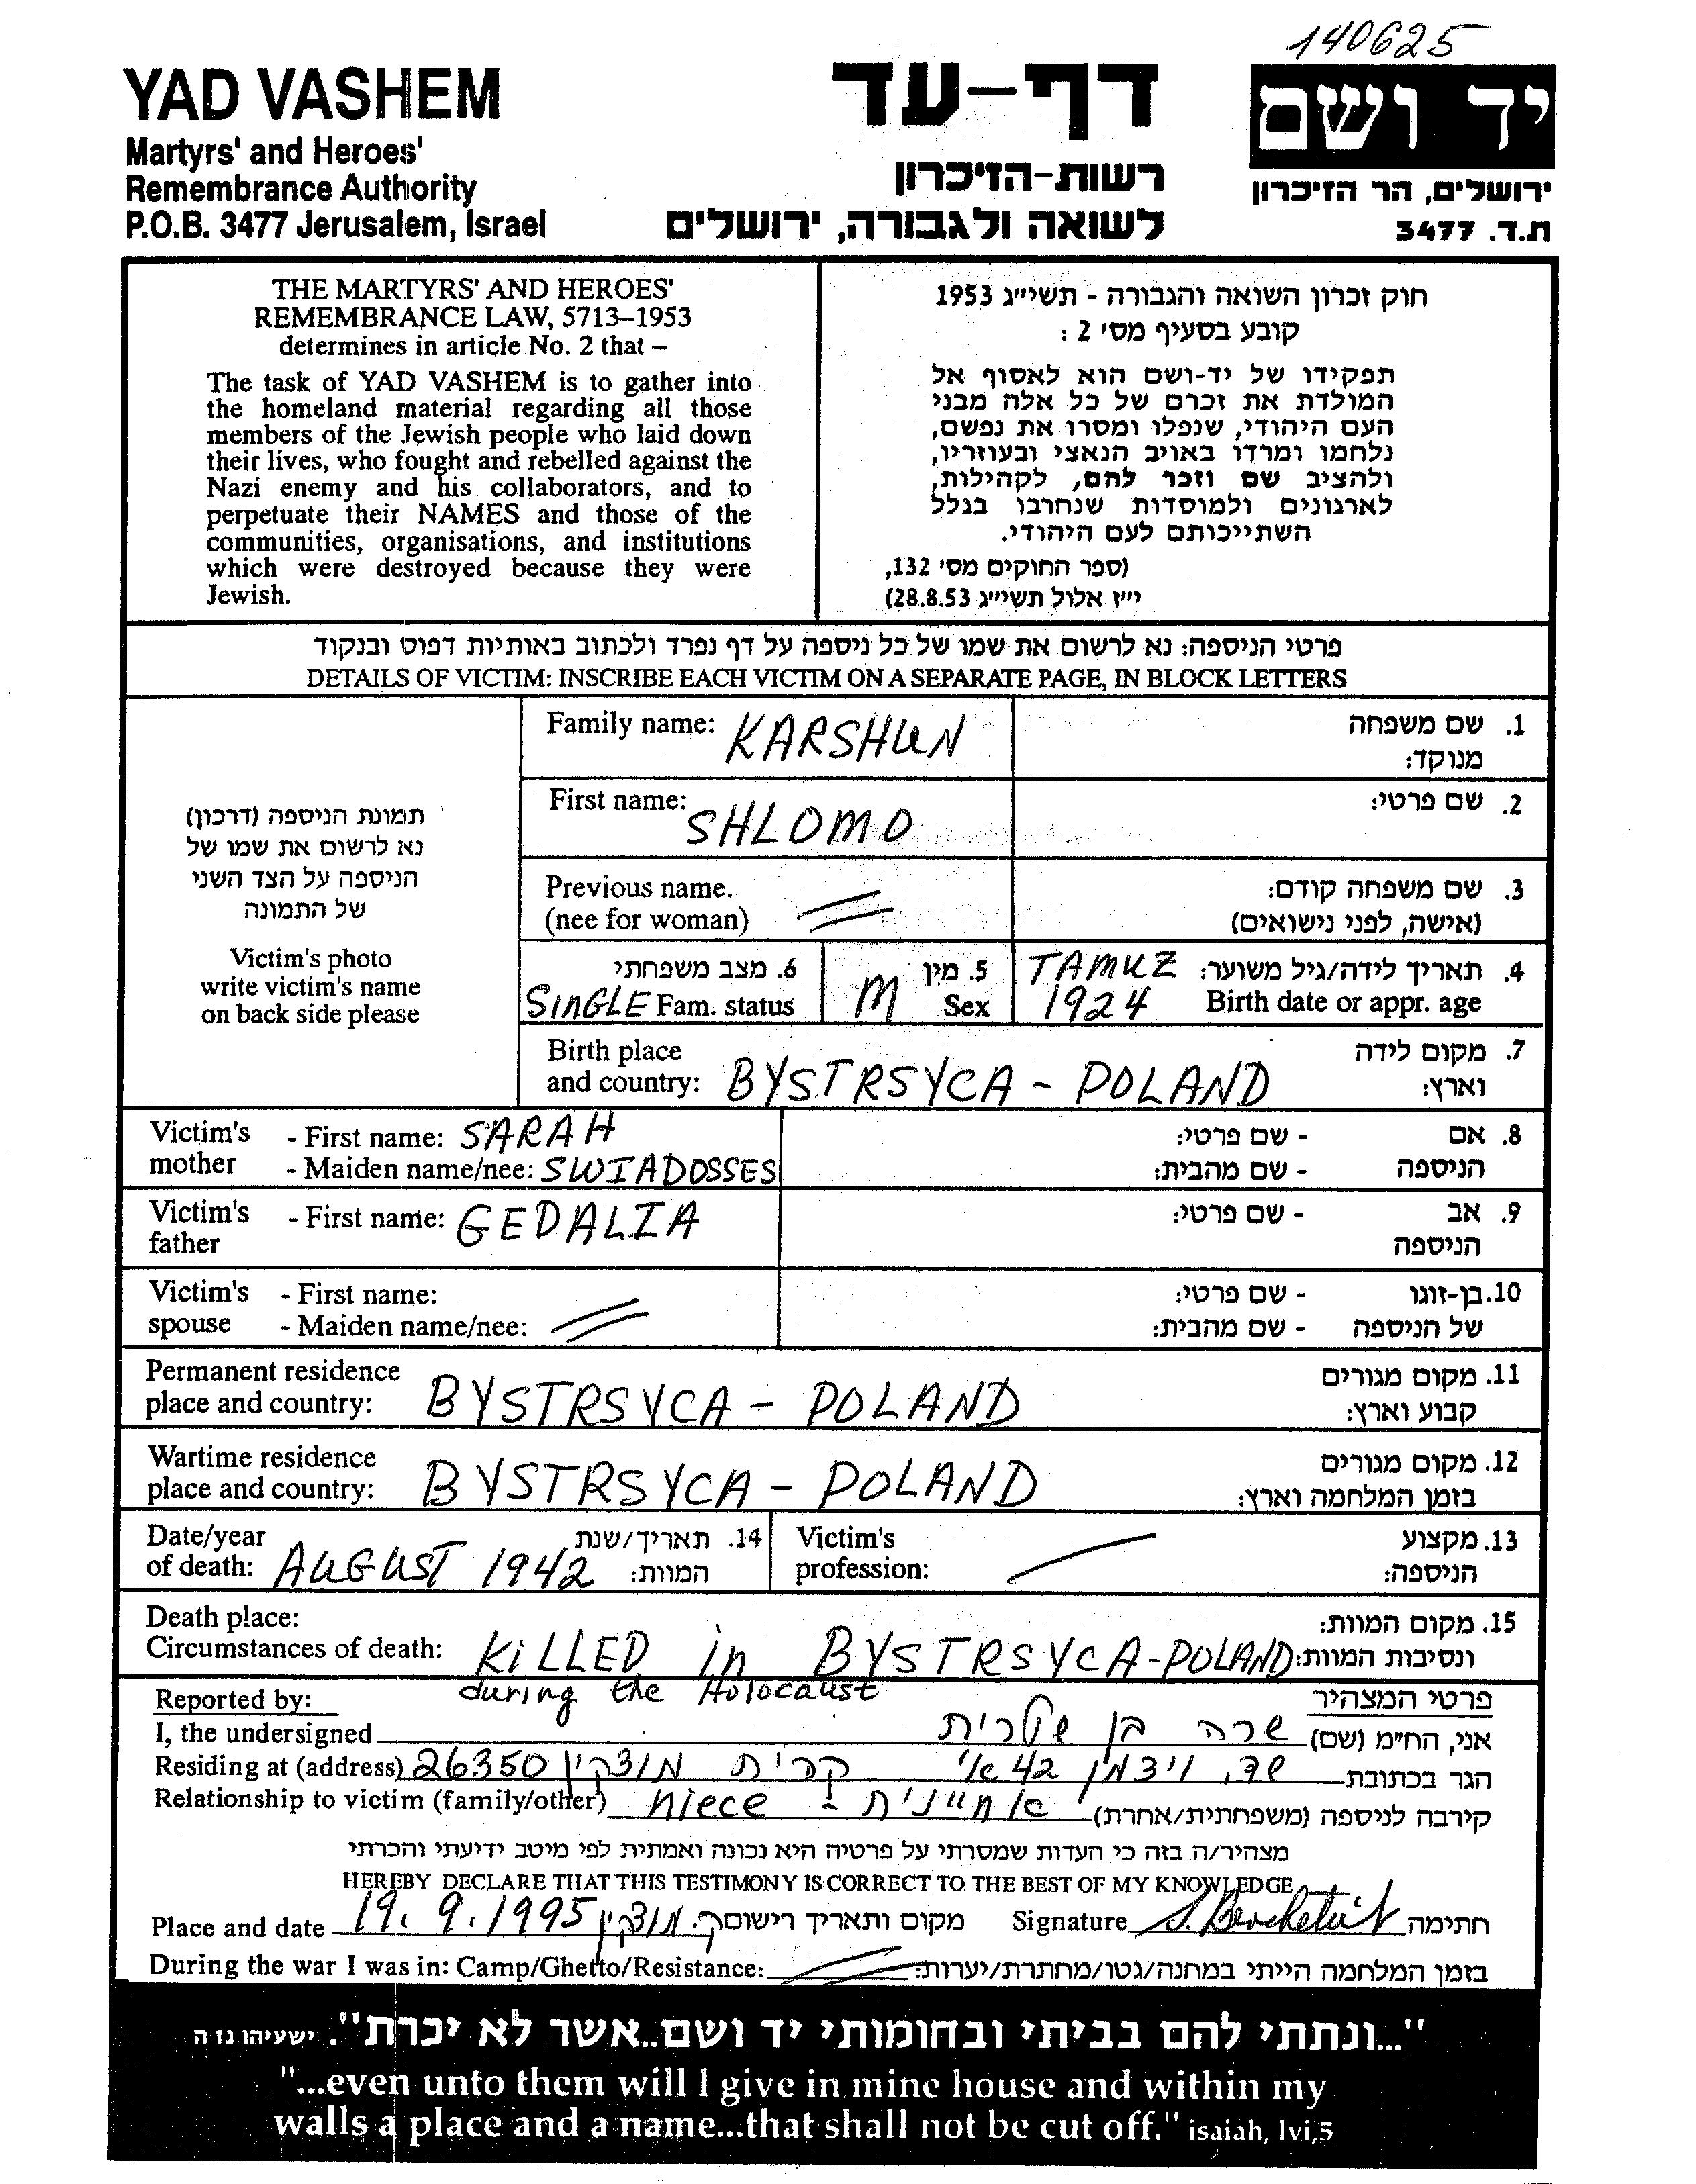 140625
YAD VASHEM
Martyrs' and Heroes'
Remembrance Authority
P.O.B. 3477 Jerusalem, Israel
דף-עד
רשות-הזיכרון
לשואה ולגבורה, ירושלים
יד ושם
ירושלים, הר הזיכרון
ת.ד. 3477
THE MARTYRS' AND HEROES'
REMEMBRANCE LAW, 5713–1953
determines in article No. 2 that –
The task of YAD VASHEM is to gather into
the homeland material regarding all those
members of the Jewish people who laid down
their lives, who fought and rebelled against the
Nazi enemy and his collaborators, and to
perpetuate their NAMES and those of the
communities, organisations, and institutions
which were destroyed because they were
Jewish.
חוק זכרון השואה והגבורה - תשי״ג 1953
קובע בסעיף מס׳ 2 :
תפקידו של יד-ושם הוא לאסוף אל
המולדת את זכרם של כל אלה מבני
העם היהודי, שנפלו ומסרו את נפשם,
נלחמו ומרדו באויב הנאצי ובעוזריו,
ולהציב שם וזכר להם, לקהילות,
לארגונים ולמוסדות שנחרבו בגלל
השתייכותם לעם היהודי.
(ספר החוקים מס׳ 132,
י״ז אלול תשי״ג 28.8.53)
פרטי הניספה: נא לרשום את שמו של כל ניספה על דף נפרד ולכתוב באותיות דפוס ובנקוד
DETAILS OF VICTIM: INSCRIBE EACH VICTIM ON A SEPARATE PAGE, IN BLOCK LETTERS
תמונת הניספה (דרכון)
נא לרשום את שמו של
הניספה על הצד השני
של התמונה
Victim's photo
write victim's name
on back side please
Family name: KARSHUN
1. שם משפחה
מנוקד:
First name: SHLOMO
2. שם פרטי:
Previous name.
(nee for woman)
3. שם משפחה קודם:
(אישה, לפני נישואים)
6. מצב משפחתי
SINGLE Fam. status
5. מין
M Sex
TAMUZ 4. תאריך לידה/גיל משוער:
1924 Birth date or appr. age
Birth place
and country: BYSTRSYCA - POLAND
7. מקום לידה
וארץ:
Victim's - First name: SARAH
mother - Maiden name/nee: SWIADOSSES
8. אם - שם פרטי:
הניספה - שם מהבית:
Victim's - First name: GEDALIA
father
9. אב - שם פרטי:
הניספה
Victim's - First name:
spouse - Maiden name/nee:
10. בן-זוגו - שם פרטי:
של הניספה - שם מהבית:
Permanent residence
place and country: BYSTRSYCA - POLAND
11. מקום מגורים
קבוע וארץ:
Wartime residence
place and country: BYSTRSYCA - POLAND
12. מקום מגורים
בזמן המלחמה וארץ:
Date/year
of death: AUGUST 1942
14. תאריך/שנת
המוות:
Victim's
profession:
13. מקצוע
הניספה:
Death place:
Circumstances of death: KiLLED in BYSTRSYCA-POLAND
during the Holocaust
15. מקום המוות:
ונסיבות המוות:
Reported by:
פרטי המצהיר
I, the undersigned
אני, החי״מ (שם) שרה בן שטרית
Residing at (address)
הגר בכתובת שד. ויצמן 42 א׳ קרית מוצקין 26350
Relationship to victim (family/other) niece -
קירבה לניספה (משפחתית/אחרת) אחיינית
מצהיר/ה בזה כי העדות שמסרתי על פרטיה היא נכונה ואמתית לפי מיטב ידיעתי והכרתי
HEREBY DECLARE THAT THIS TESTIMONY IS CORRECT TO THE BEST OF MY KNOWLEDGE
Place and date 19.9.1995 ק. מוצקין מקום ותאריך רישום
Signature חתימה
During the war I was in: Camp/Ghetto/Resistance:
בזמן המלחמה הייתי במחנה/גטו/מחתרת/יערות:
"...ונתתי להם בביתי ובחומותי יד ושם..אשר לא יכרת". ישעיהו נו ה
"...even unto them will I give in mine house and within my
walls a place and a name...that shall not be cut off." isaiah, lvi,5